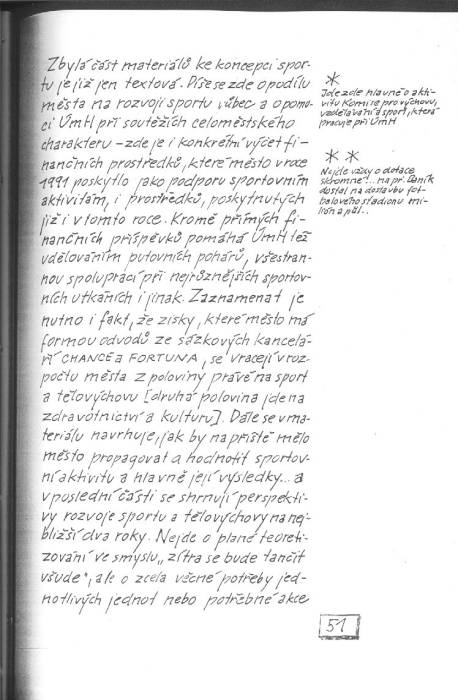 Zbylá část materiálů ke koncepci spor-
tu je již jen textová. Píše se zde o podílu
města na rozvoji sportu vůbec a o pomo-
ci ÚmH při soutěžích celoměstského
charakteru – zde je i konkrétní výčet fi-
nančních prostředků, které město v roce
1991 poskytlo jako podporu sportovním
aktivitám, i prostředků, poskytnutých
již i v tomto roce. Kromě přímých fi-
nančních příspěvků pomáhá ÚmH též
vdělováním putovních pohárů, všestran-
nou spoluprací při nejrůznějších sportov-
ních utkáních i jinak. Zaznamenat je
nutno i fakt, že zisky, které město má
formou odvodů ze sázkových kancelá-
ří CHANCE a FORTUNA, se vracejí v roz-
počtu města z poloviny právě na sport
a tělovýchovu [druhá polovina jde na
zdravotnictví a kulturu]. Dále se v ma-
teriálu navrhuje, jak by napříště mělo
město propagovat a hodnotit sportov-
ní aktivitu a hlavně její výsledky... a
v poslední části se shrnují perspekti-
vy rozvoje sportu a tělovýchovy na nej-
bližší dva roky. Nejde o plané teoreti-
zování ve smyslu „zítra se bude tančit
všude", ale o zcela věcné potřeby jed-
notlivých jednot nebo potřebné akce
*
Jde zde hlavně o akti-
vitu Komise pro výchovu,
vzdělávání a sport, která
pracuje při ÚmH
* *
Nejde vždy o dotace
skromné!... např. Baník
dostal na dostavbu fot-
balového stadionu mi-
lión a půl...
51